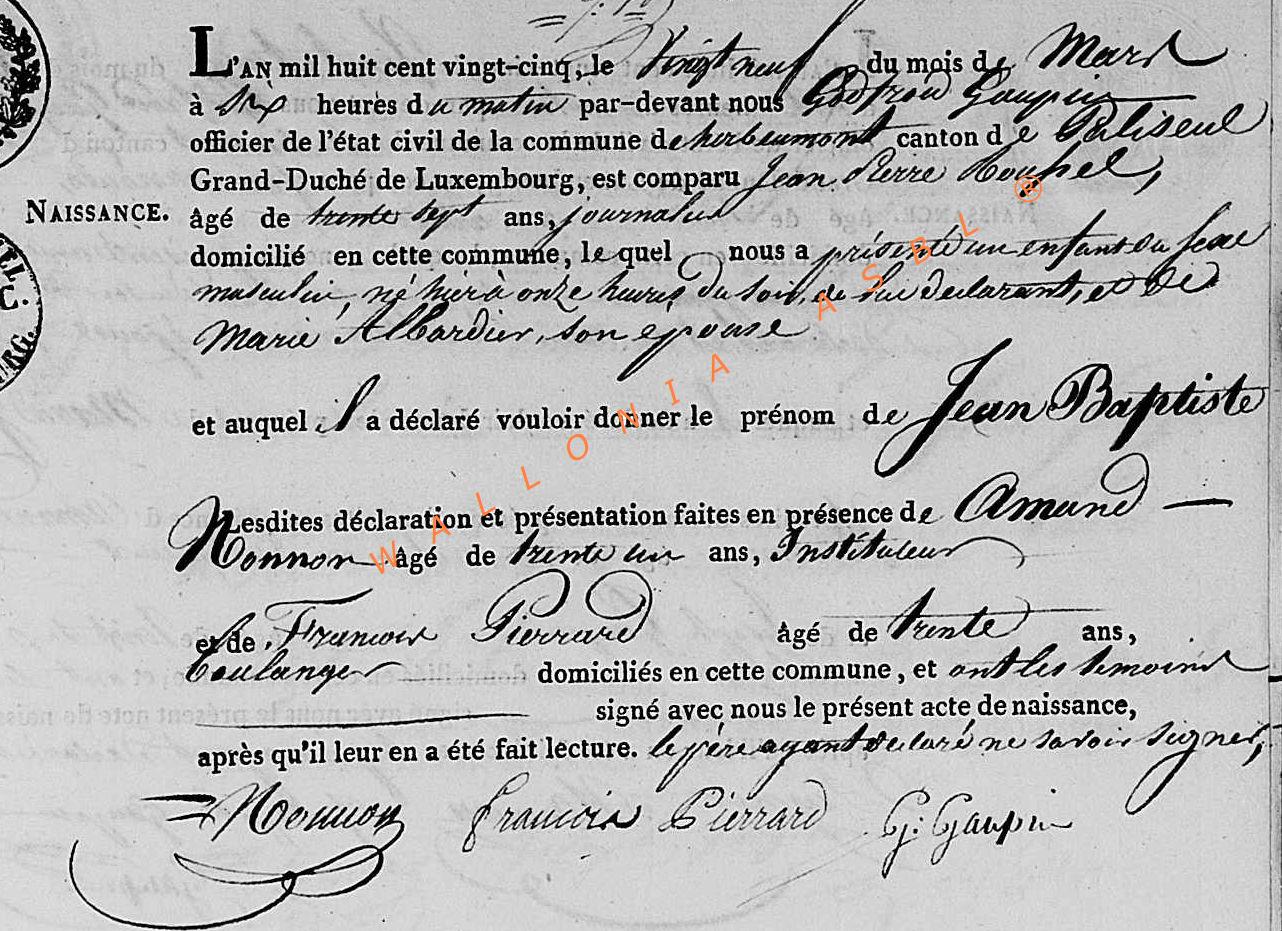 L'AN mil huit cent vingt-cinq, le vingt neuf du mois de Mars
à dix heures du matin par-devant nous Godfroid Gaupin
officier de l'état civil de la commune de herbeumont canton de Paliseul
Grand-Duché de Luxembourg, est comparu Jean Pierre
NAISSANCE. âgé de trente sept ans, journalier
domicilié en cette commune, le quel nous a présenté un enfant du sexe
masculin, né hier à onze heures du soir, de lui declarant, et de
Marie Albardier, son epouse
et auquel il a déclaré vouloir donner le prénom de Jean Baptiste
Lesdites déclaration et présentation faites en présence de Amand
Nonnon âgé de trente un ans, Instituteur
et de Francois Pierrard âgé de trente ans,
boulanger domiciliés en cette commune, et ont les temoins
signé avec nous le présent acte de naissance,
après qu'il leur en a été fait lecture. le père ayant declaré ne savoir signer,
Nonnon Francois Pierrard G: Gaupin
WALLONIA ASBL ®